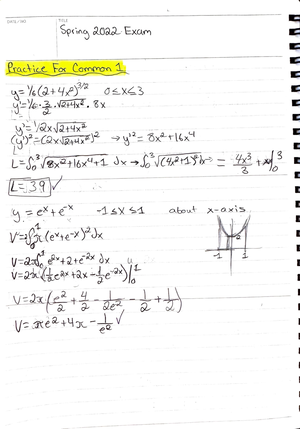 DATE / NO.
TITLE
Spring 2022 Exam
Practice For Common 1
y = 1/6 (2 + 4x²)^3/2   0 ≤ x ≤ 3
y' = 1/6 · 3/2 · √2+4x² · 8x
y' = 1/2x √2+4x²
(y')² = (2x√2+4x²)² → y'² = 8x² + 16x⁴
L = ∫₀³ √8x²+16x⁴+1 dx → ∫₀³ √(4x²+1)² dx = 4x³/3 + x |₀³
L = 39 ✓
y = eˣ + e⁻ˣ   -1 ≤ x ≤ 1   about x-axis
V = 2∫₀¹ π (eˣ+e⁻ˣ)² dx
2
-1 1
V = 2π∫₀¹ e²ˣ + 2 + e⁻²ˣ dx
V = 2π (1/2 e²ˣ + 2x - 1/2 e⁻²ˣ) |₀¹
V = 2π (e²/2 + 4/2 - 1/2e² - 1/2 + 1/2)
V = πe² + 4π - π/e² ✓